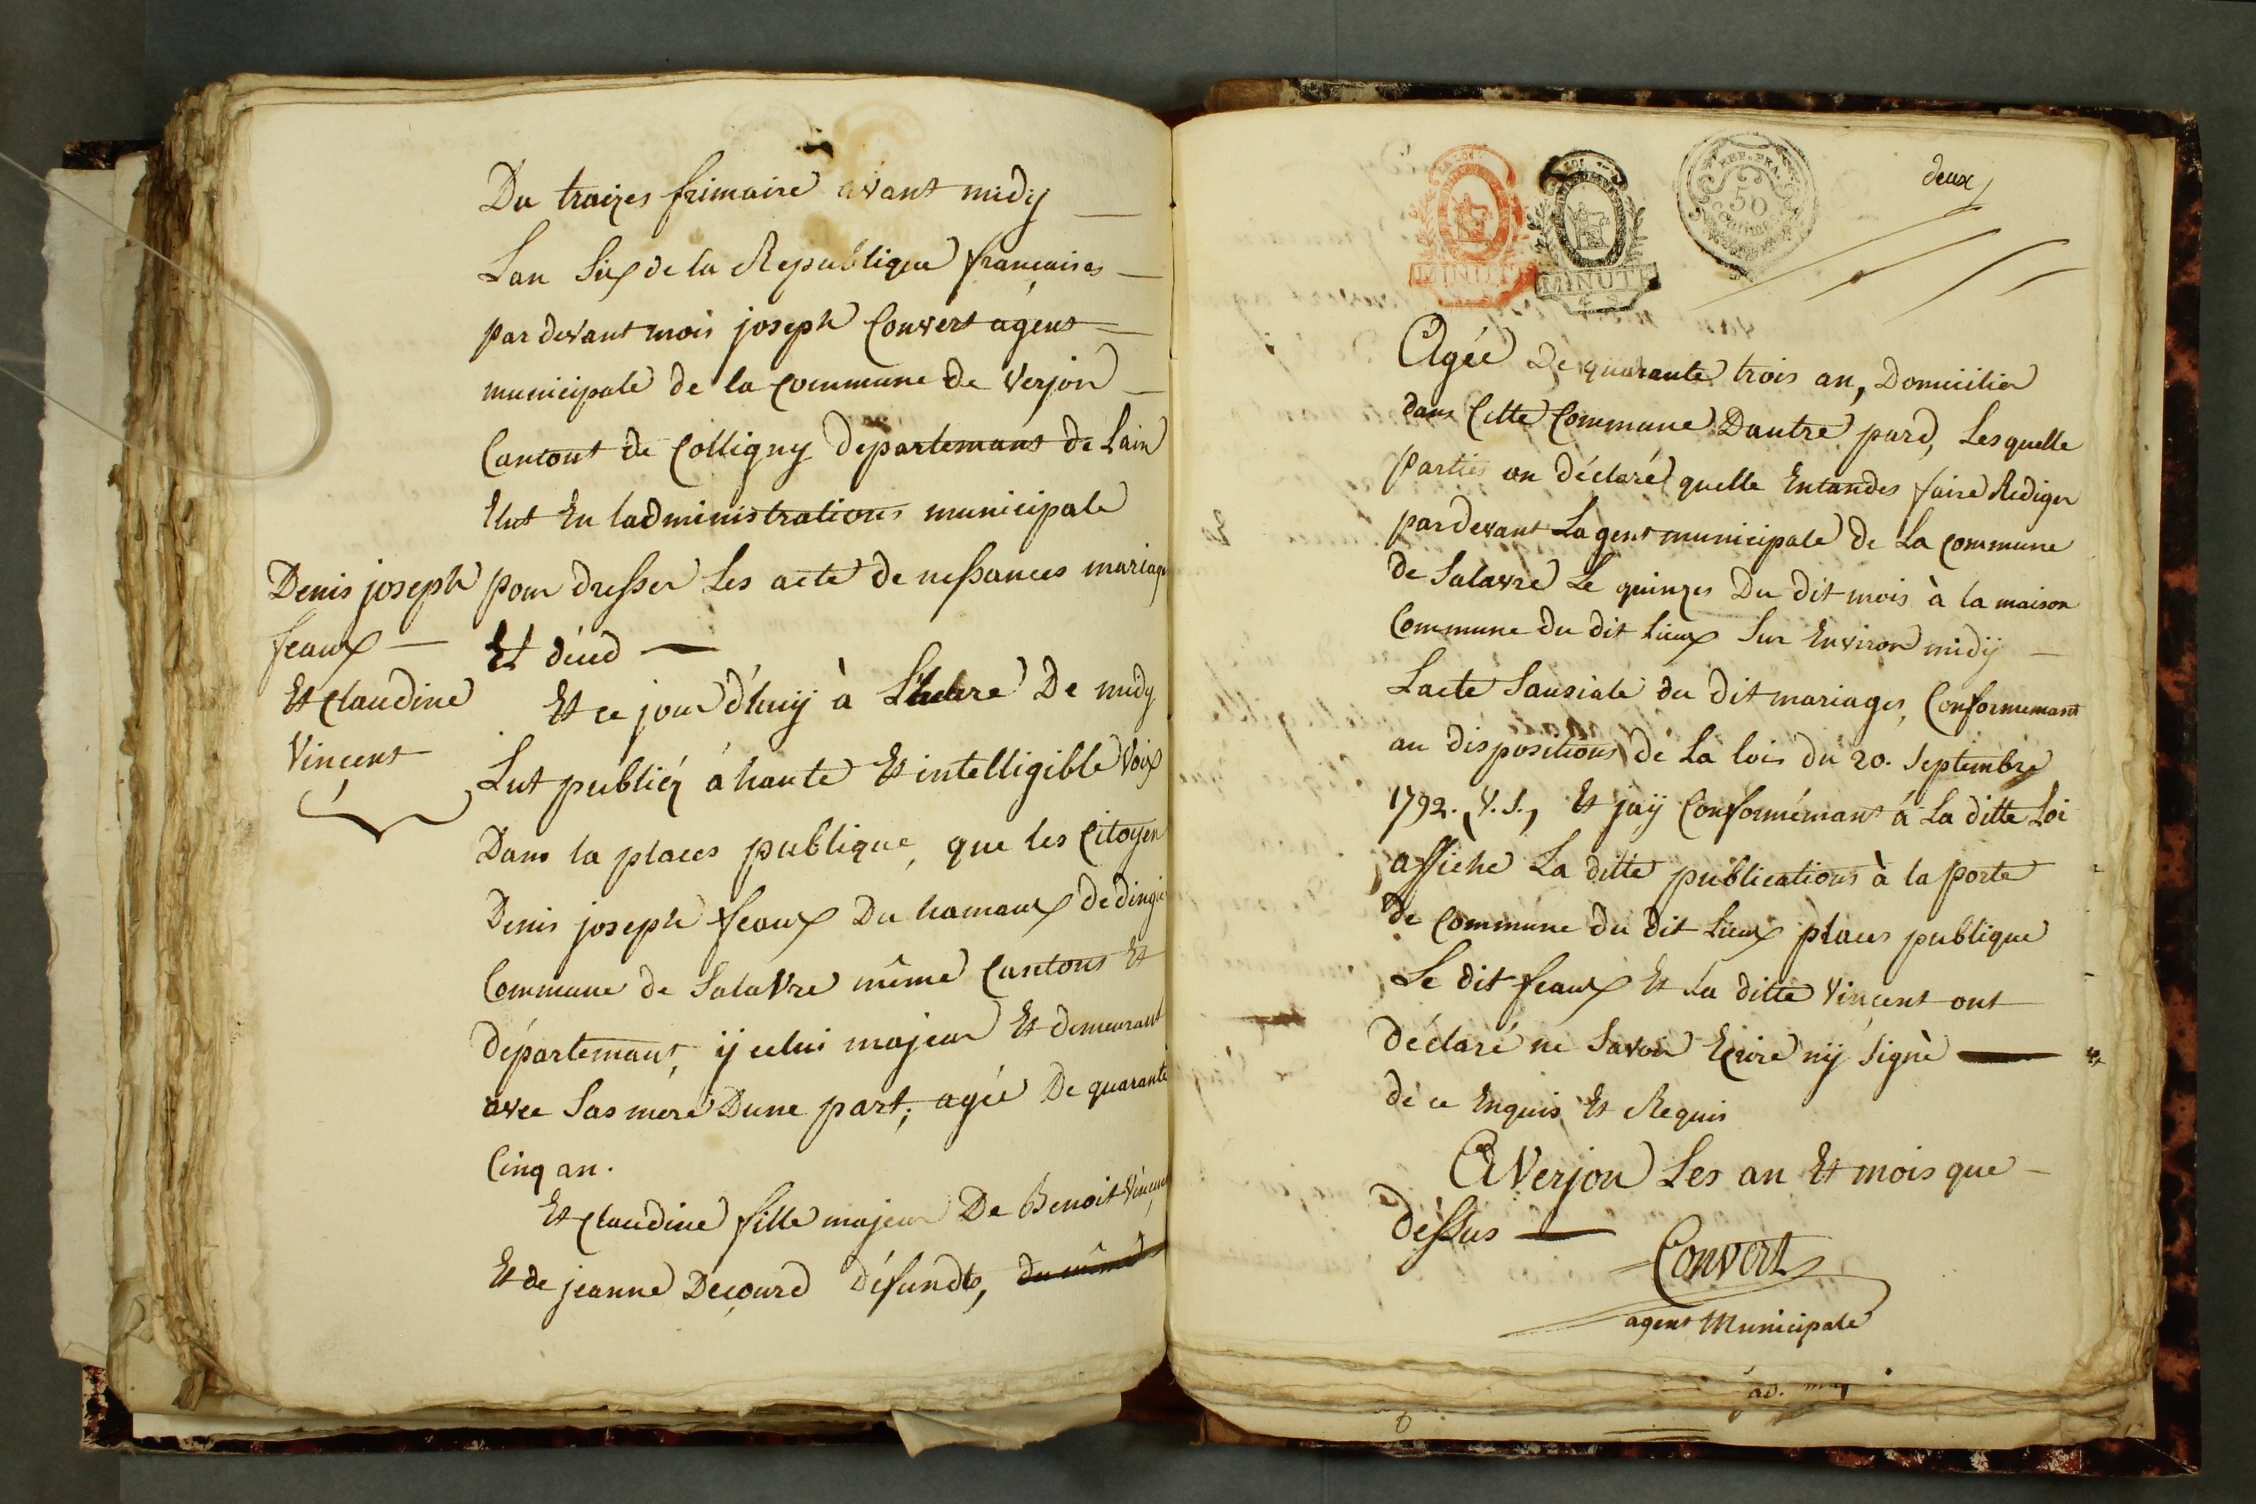 Du traizes frimaire avant midy
Lan Six de la Republique françaises
par devant mois joseph Convert agent
municipale de la commune de Verjon
Cantont de Colligny departemant de Lain
Elut En ladministrations municipale
pour dresser Les acte de nessances mariage
Et déced
Denis joseph
feaux
Et Claudine
Vincent
Et ce jour d'huÿ à L'heure De midy
Lut publiéz á haute Et intelligible Voix
Dans la places publique, que les Citoyen
Denis joseph feaux Du hamaux de dingie
Commune de Salavre même Cantons Et
département, ij celui majeur Et demeurant
avec Sas mere Dune part, agée De quarante
Cinq an.
Et Claudine fille majeur De Benoit Vincent
Et de jeanne Deçourd défundts, du même
deux
REP. FRA.
50
Centimes
MINUTE
MINUTE
Agée De quarante trois an, Domicilier
dans Cette Commune Dautre pard, Lesquelle
parties on déclaré quelle Entandes faire Rediger
par devant Lagent municipale de La commune
de Salavre Le quinzes Du dit mois à la maison
Commune du dit Lieux Sur Environ midÿ
Lacte Sausiale du dit mariages, Conformemant
au dispositions de La lois du 20. Septembre
1792. V.S., Et jaÿ Conformémant á La ditte Loi
affiche La ditte publications à la porte
de commune du dit Lieux places publique
Le dit feaux Et La ditte Vincent ont
déclaré ne Savoir Ecrire nÿ Signè
dé ce Enquis Et Requis
A Verjon Les an Et mois que
déssus
Convert
agent Municipale